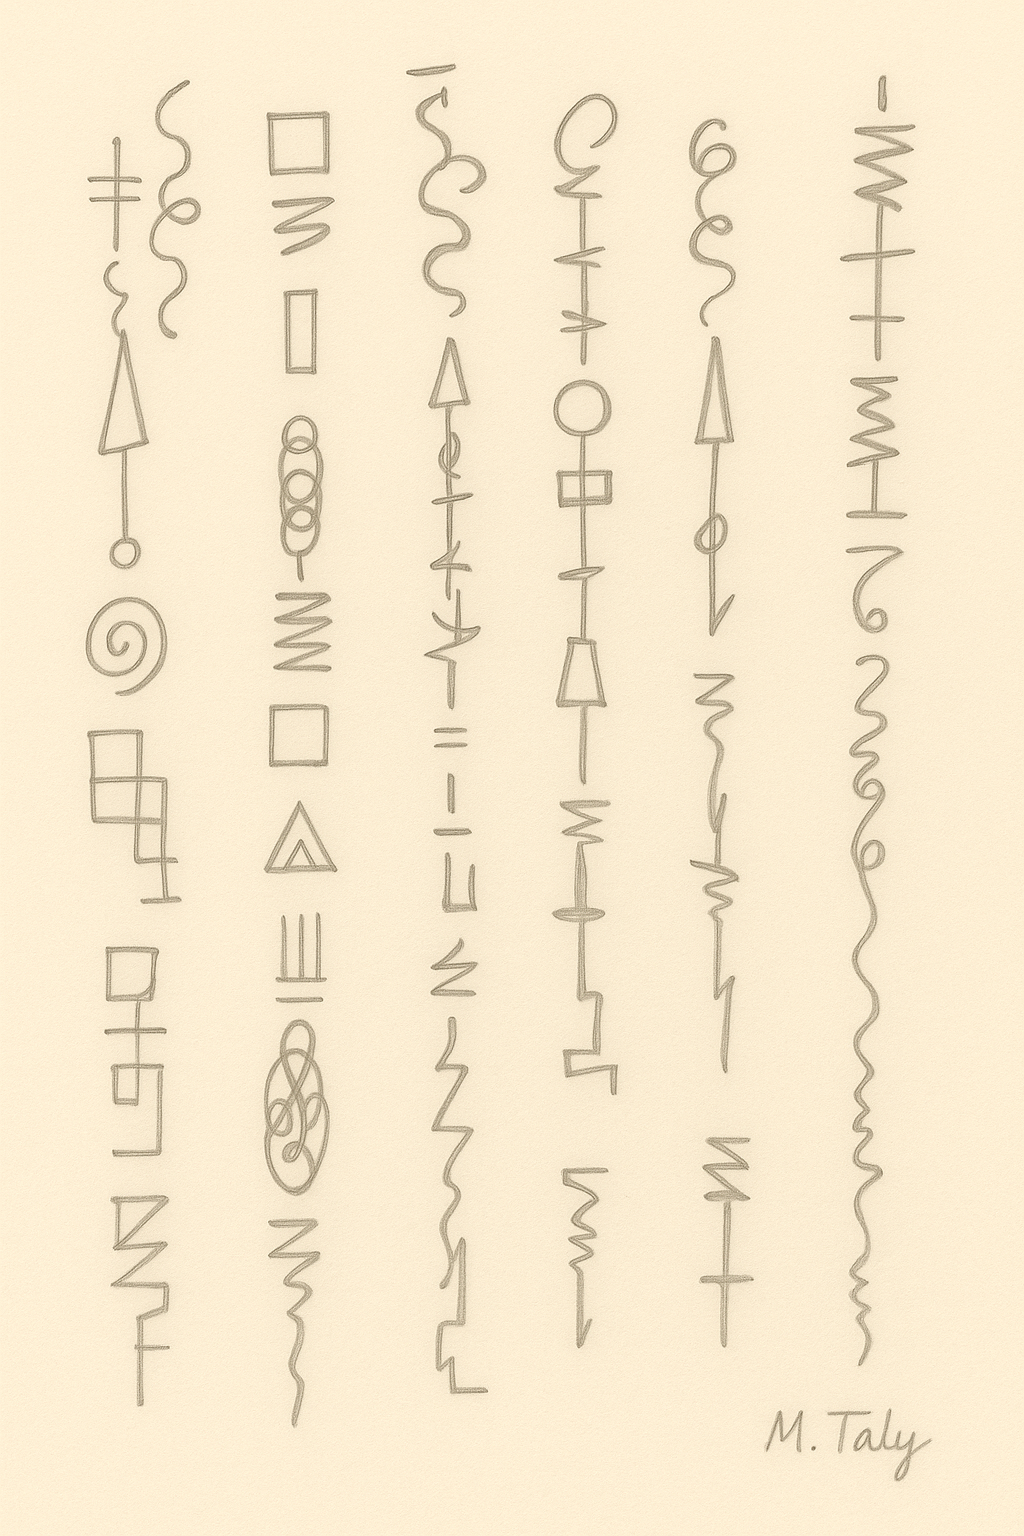 M. Taly